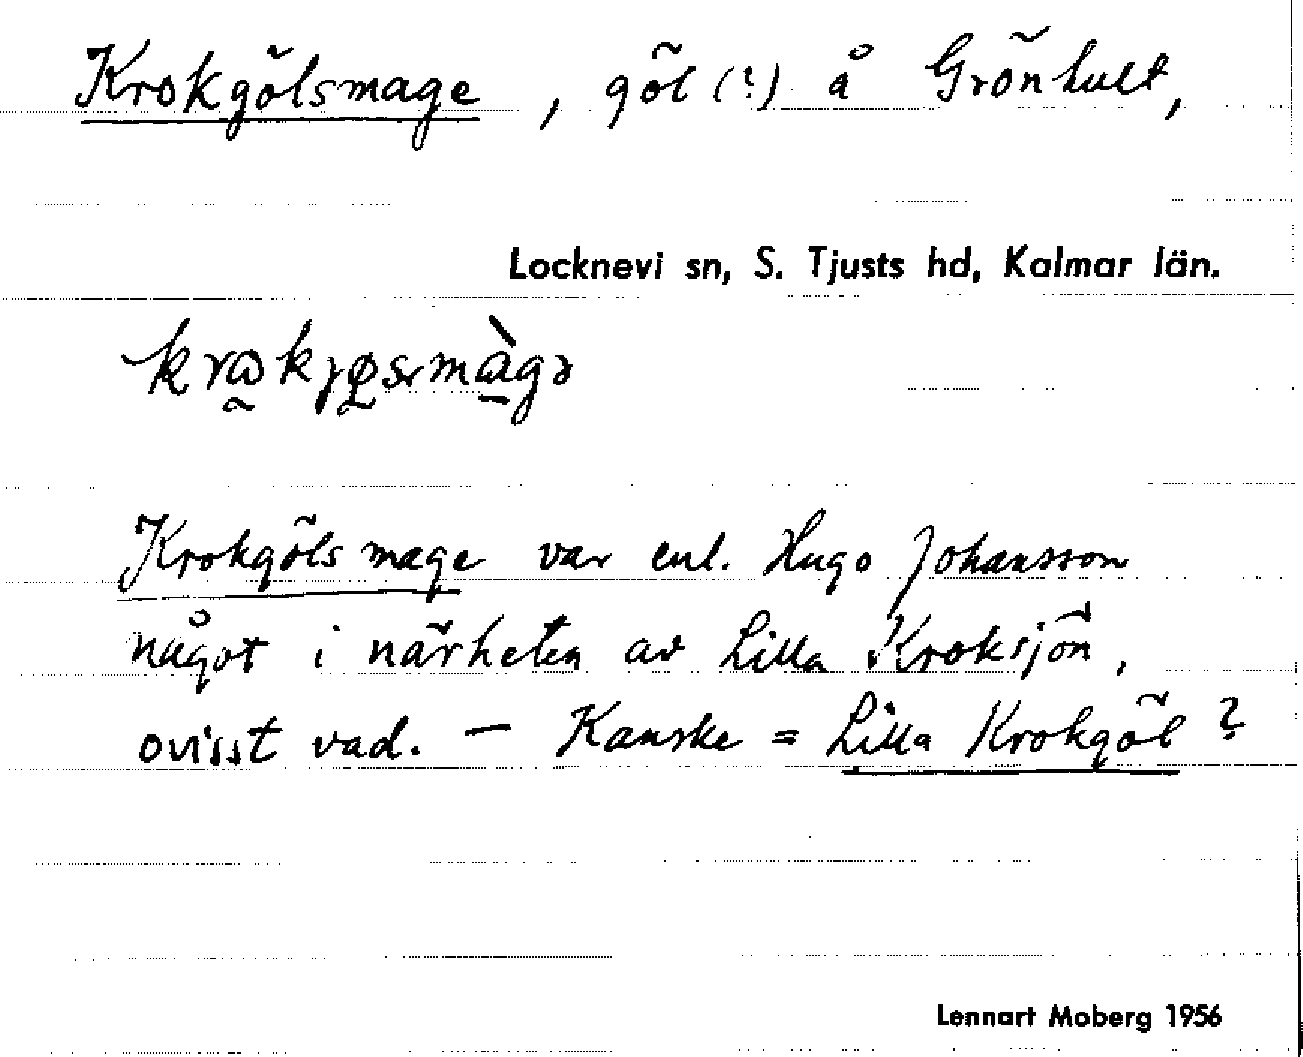 Krokgölsmage, göl (?) å Grönhult,
Locknevi sn, S. Tjusts hd, Kalmar län.
Krokgölsmage var enl. Hugo Johansson
något i närheten av Lilla Kroksjön,
ovisst vad. – Kanske = Lilla Krokgöl?
Lennart Moberg 1956